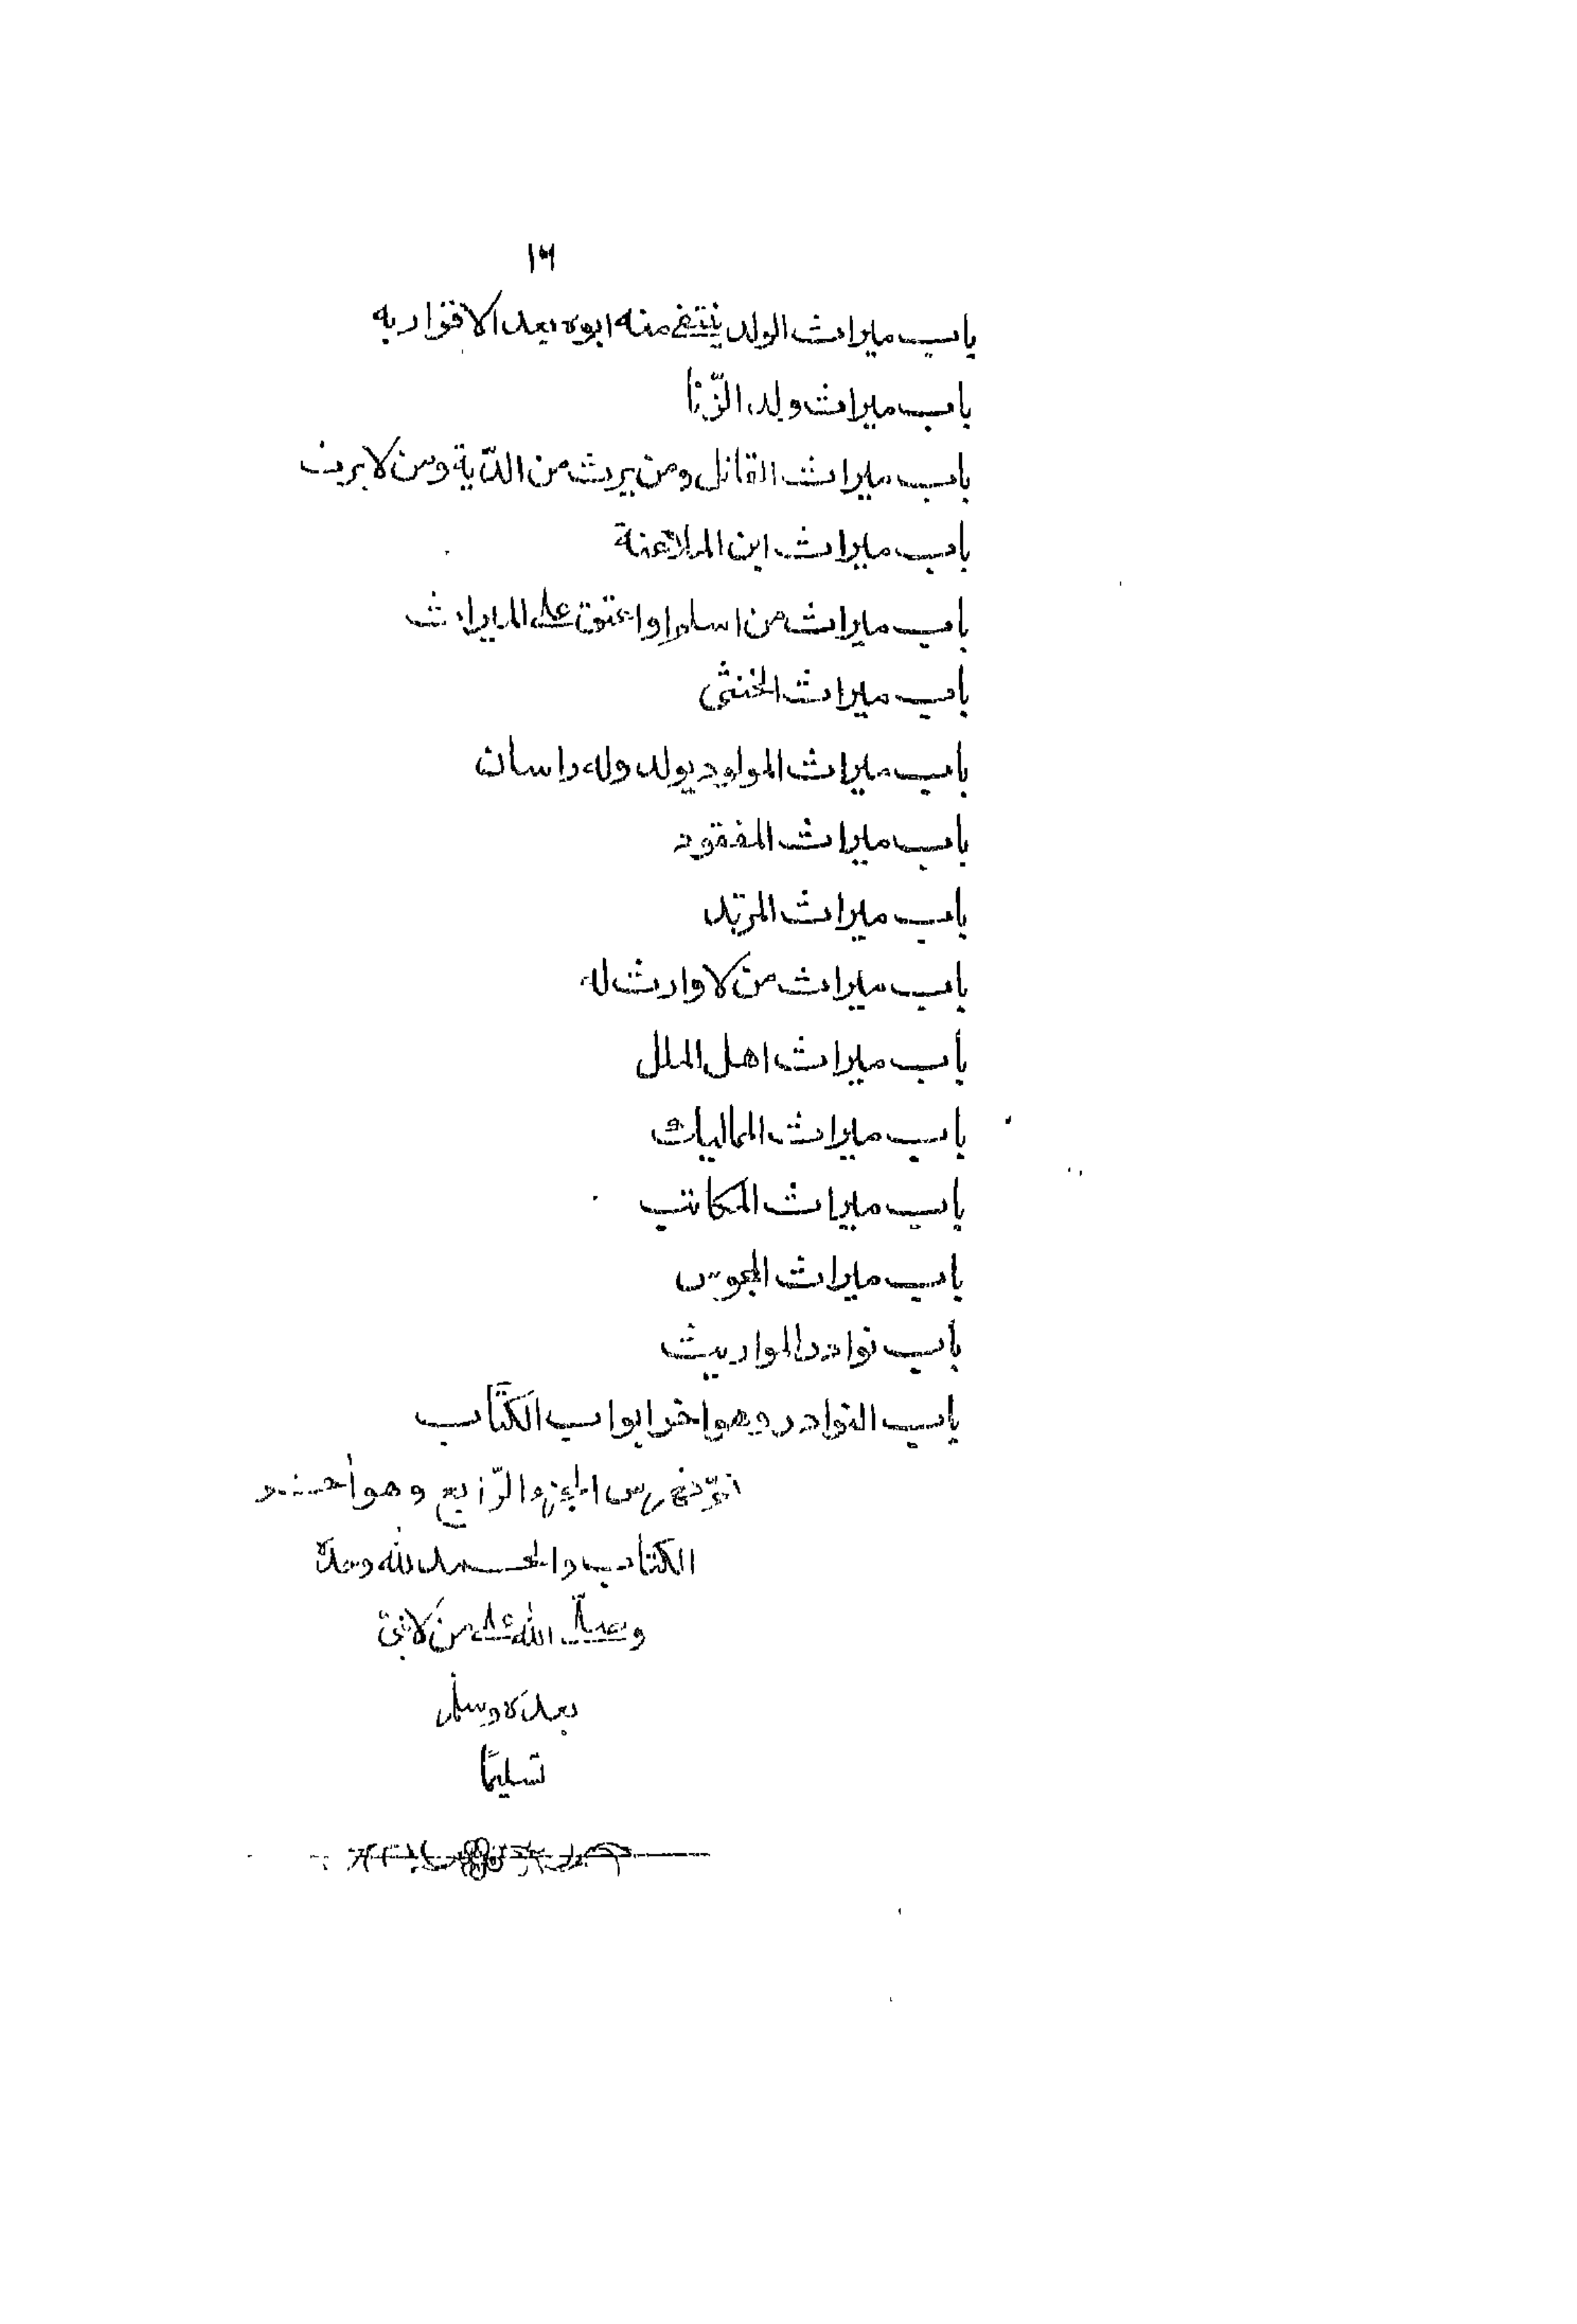 ١٦
باب ميراث الولد ينتفى منه ابوه بعد الاقرار به
باب ميراث ولد الزّنا
باب ميراث القاتل ومن يرث من الدّية ومن لا يرث
باب ميراث ابن الملاعنة
باب ميراث من اسلم او اعتق على الميراث
باب ميراث الخنثى
باب ميراث المولود يولد وله راسان
باب ميراث المفقود
باب ميراث المرتد
باب ميراث من لا وارث له
باب ميراث اهل الملل
باب ميراث المماليك
باب ميراث المكاتب
باب ميراث المجوس
باب نوادر المواريث
باب النوادر وهو اخر ابواب الكتَاب
فهرس الجزء الرّابع وهو
الكتاب والحمد لله وحدَه
وصلّى الله على من لا نبىّ
بعدَه وسلم
تسليمًا